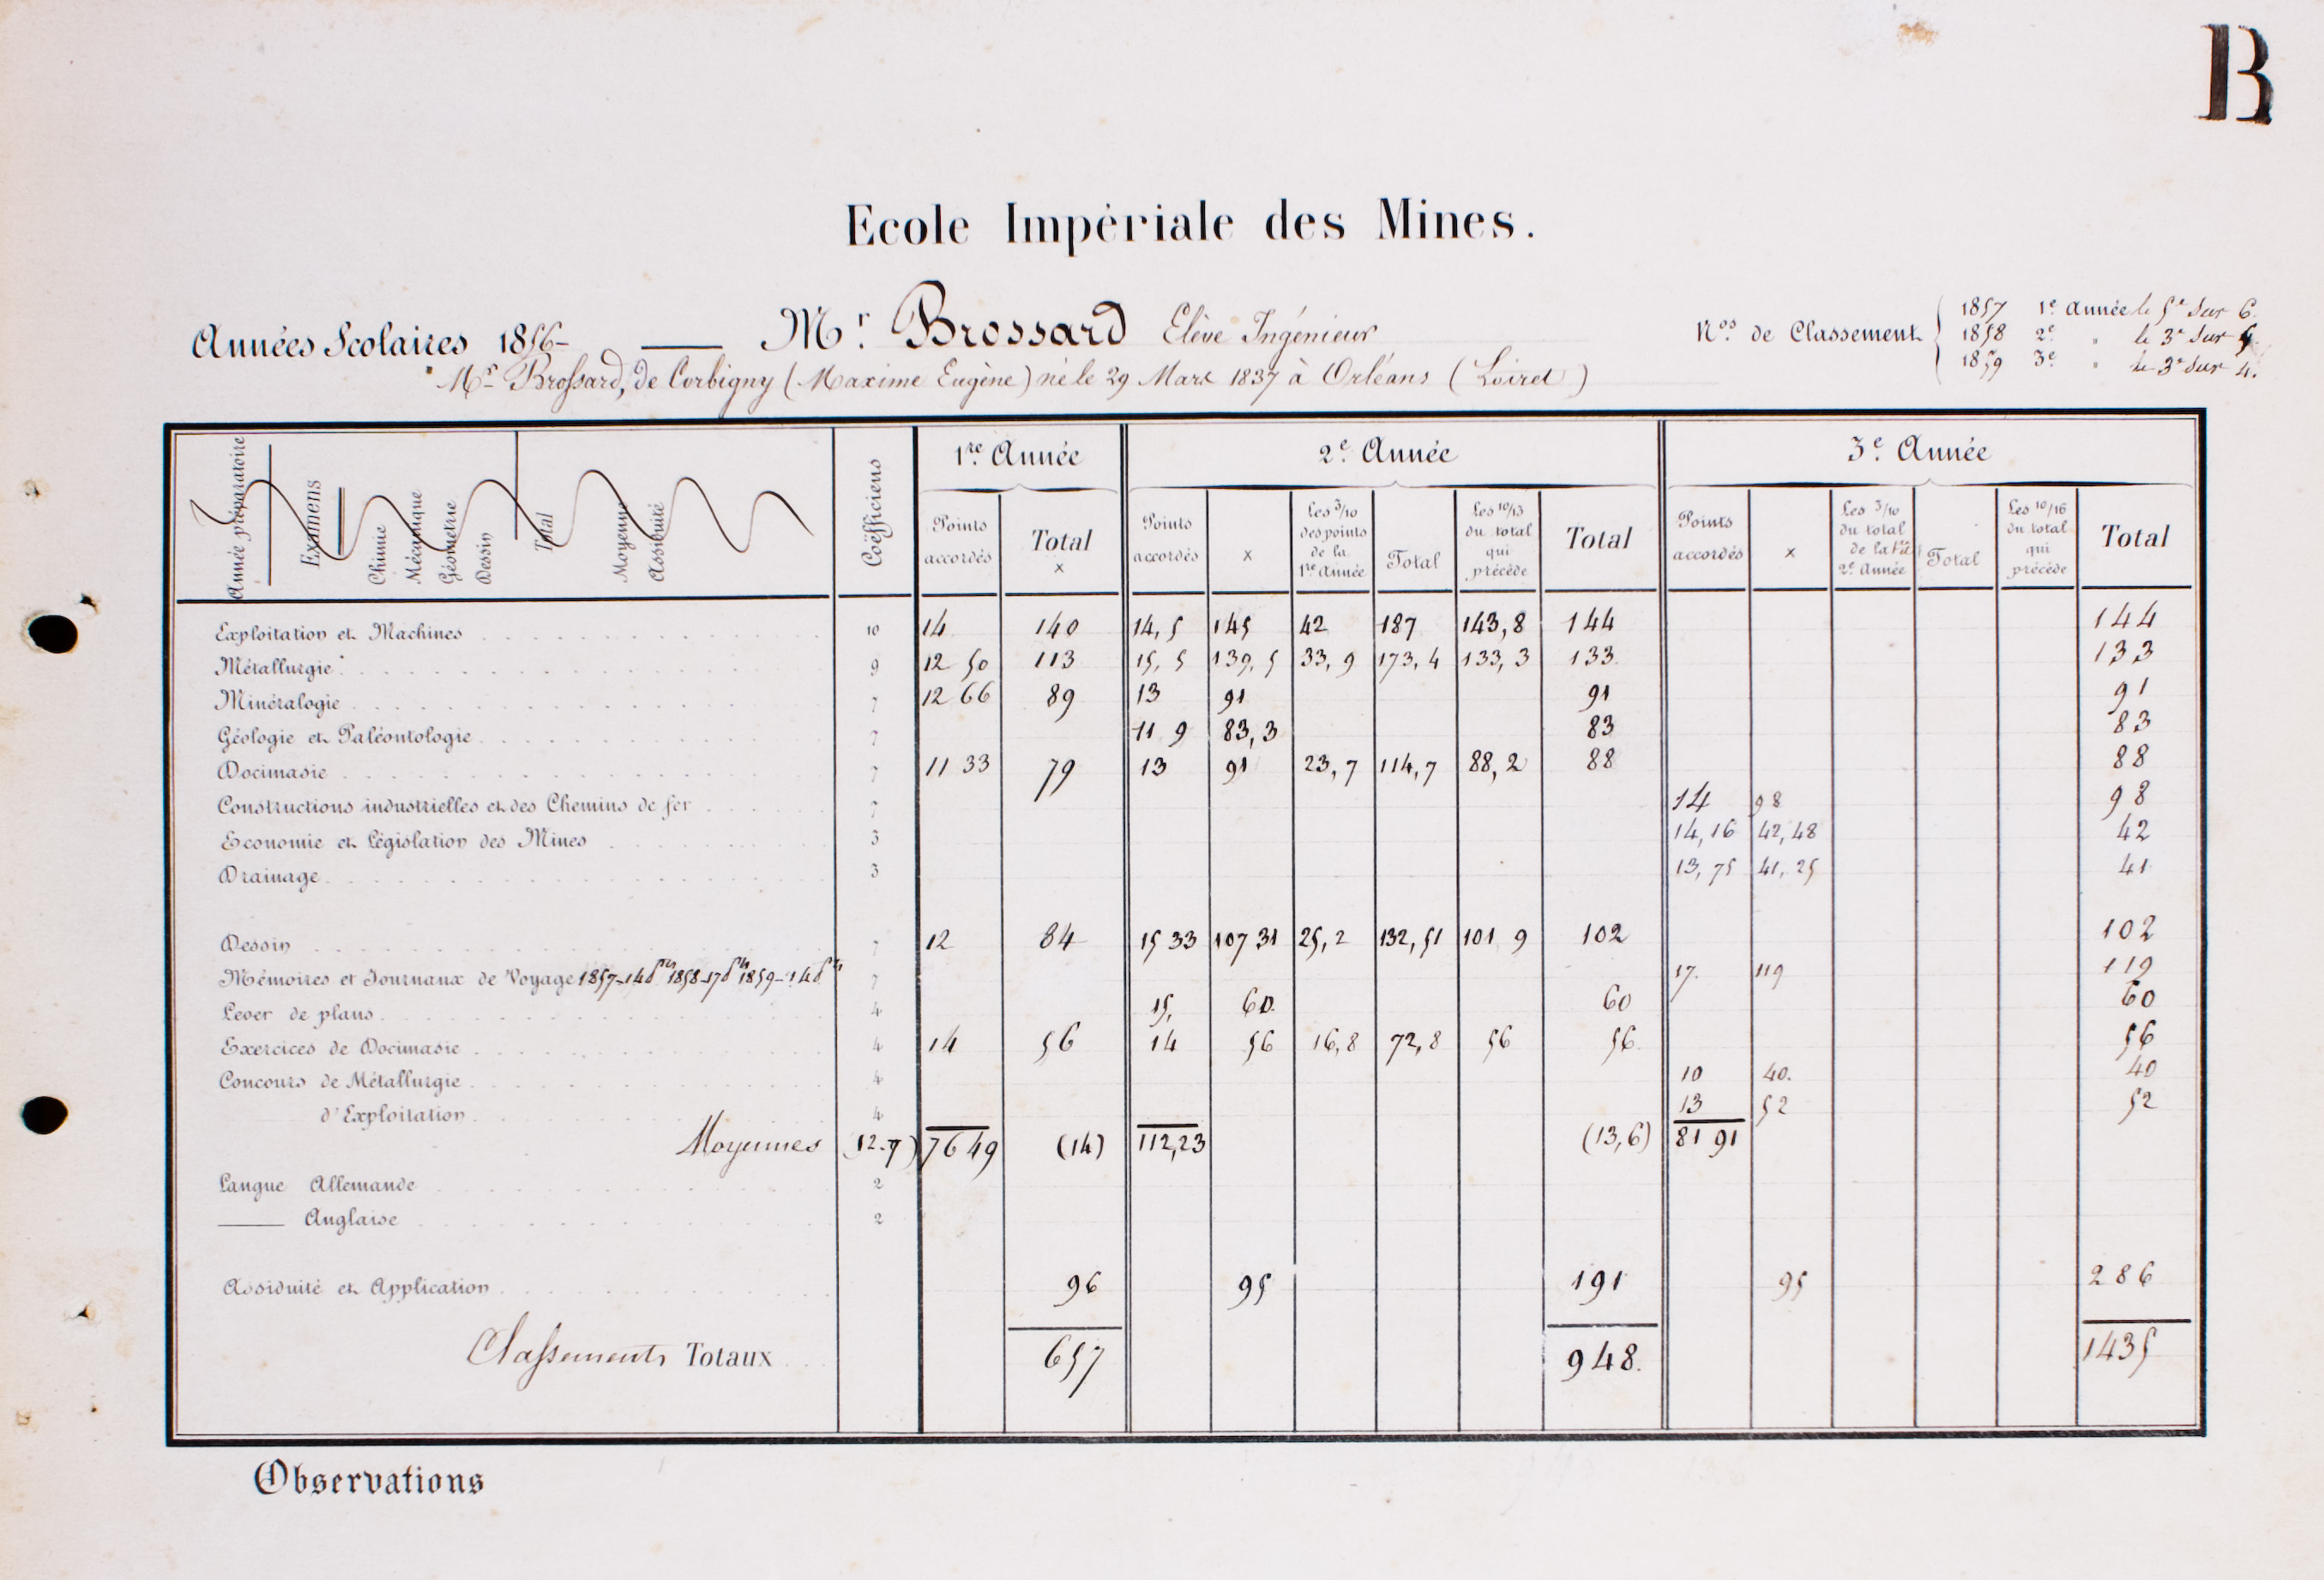 B
Ecole Impériale des Mines.
Années Scolaires 1856- —— Mr. Brossard Elève Ingénieur
Mr. Brossard, de Corbigny (Maxime Eugène) né le 29 Mars 1837 à Orléans (Loiret)
Nos. de Classement
1857 1e. Année le 5e sur 6.
1858 2e. " le 3e sur
1859 3e. " le 3e sur 4.
Année préparatoire
Examens
Chimie
Mécanique
Géométrie
Dessin
Total
Moyenne
Assiduité
Coëfficiens
1re. Année 2e. Année 3e. Année
Points accordés
Total x
Points accordés
x
Les 3/10 des points de la 1re Année
Total
Les 10/13 du total qui précède
Total
Points accordés
x
Les 3/10 du total de la 2e Année
Total
Les 10/16 du total qui précède
Total
Exploitation et Machines 10 14 140 14,5 145 42 187 143,8 144 144
Métallurgie 9 12 50 113 15,5 139,5 33,9 173,4 133,3 133 133
Minéralogie 7 12 66 89 13 91 91 91
Géologie et Paléontologie 7 11 9 83,3 83 83
Docimasie 7 11 33 79 13 91 23,7 114,7 88,2 88 88
Constructions industrielles et des Chemins de fer 7 14 98 98
Economie et Législation des Mines 3 14,16 42,48 42
Drainage 3 13,75 41,25 41
Dessin 7 12 84 15 33 107 31 25,2 132,51 101 9 102 102
Mémoires et Journaux de Voyage 1857-14 1858-17 1859-14 7 17. 119 119
Lever de plans 4 15, 60. 60 60
Exercices de Docimasie 4 14 56 14 56 16,8 72,8 56 56. 56
Concours de Métallurgie 4 10 40. 40
d'Exploitation 4 13 52 52
Moyennes (12.7) 76 49 (14) 112,23 (13,6) 81 91
Langue Allemande 2
—— Anglaise 2
Assiduité et Application 96 95 191 95 286
Classements Totaux 657 948. 1435
Observations